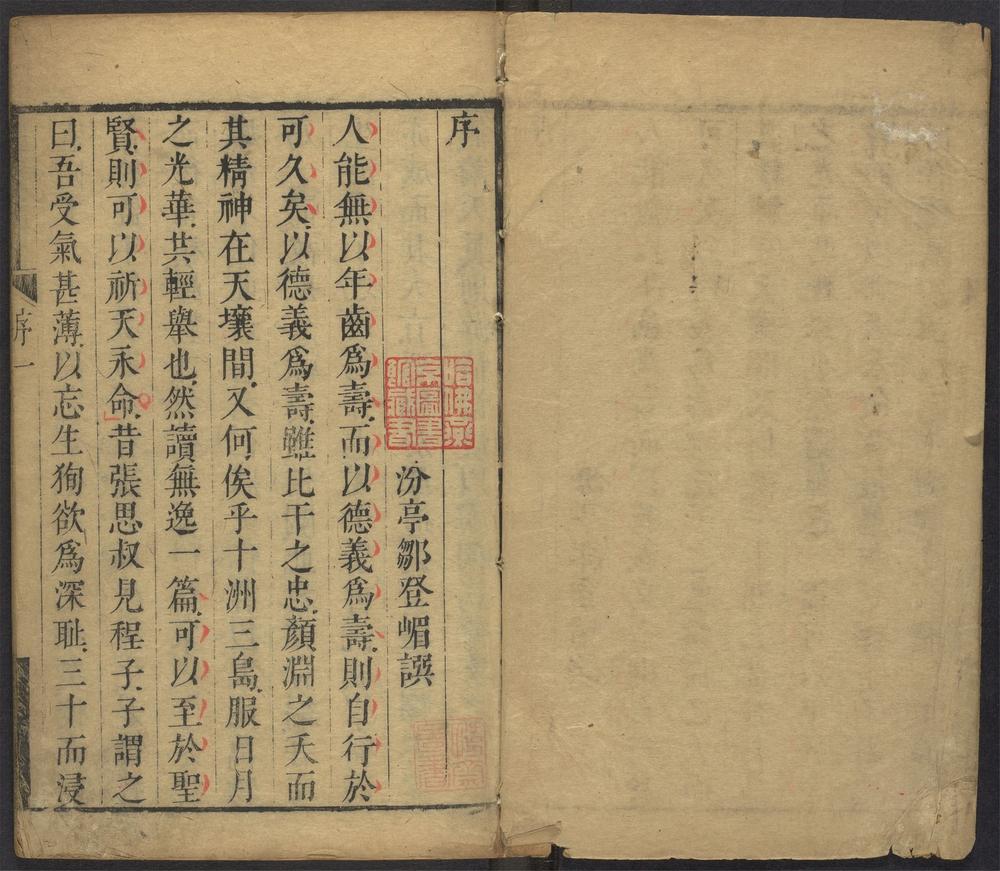 序
汾亭鄒登嵋譔
人能無以年齒爲壽而以德義爲壽則自行於
可久矣以德義爲壽雖比干之忠顏淵之夭而
其精神在天壤間又何俟乎十洲三島服日月
之光華共輕舉也然讀無逸一篇可以至於聖
賢則可以祈天永命昔張思叔見程子子謂之
曰吾受氣甚薄以忘生狥欲爲深耻三十而浸
序一